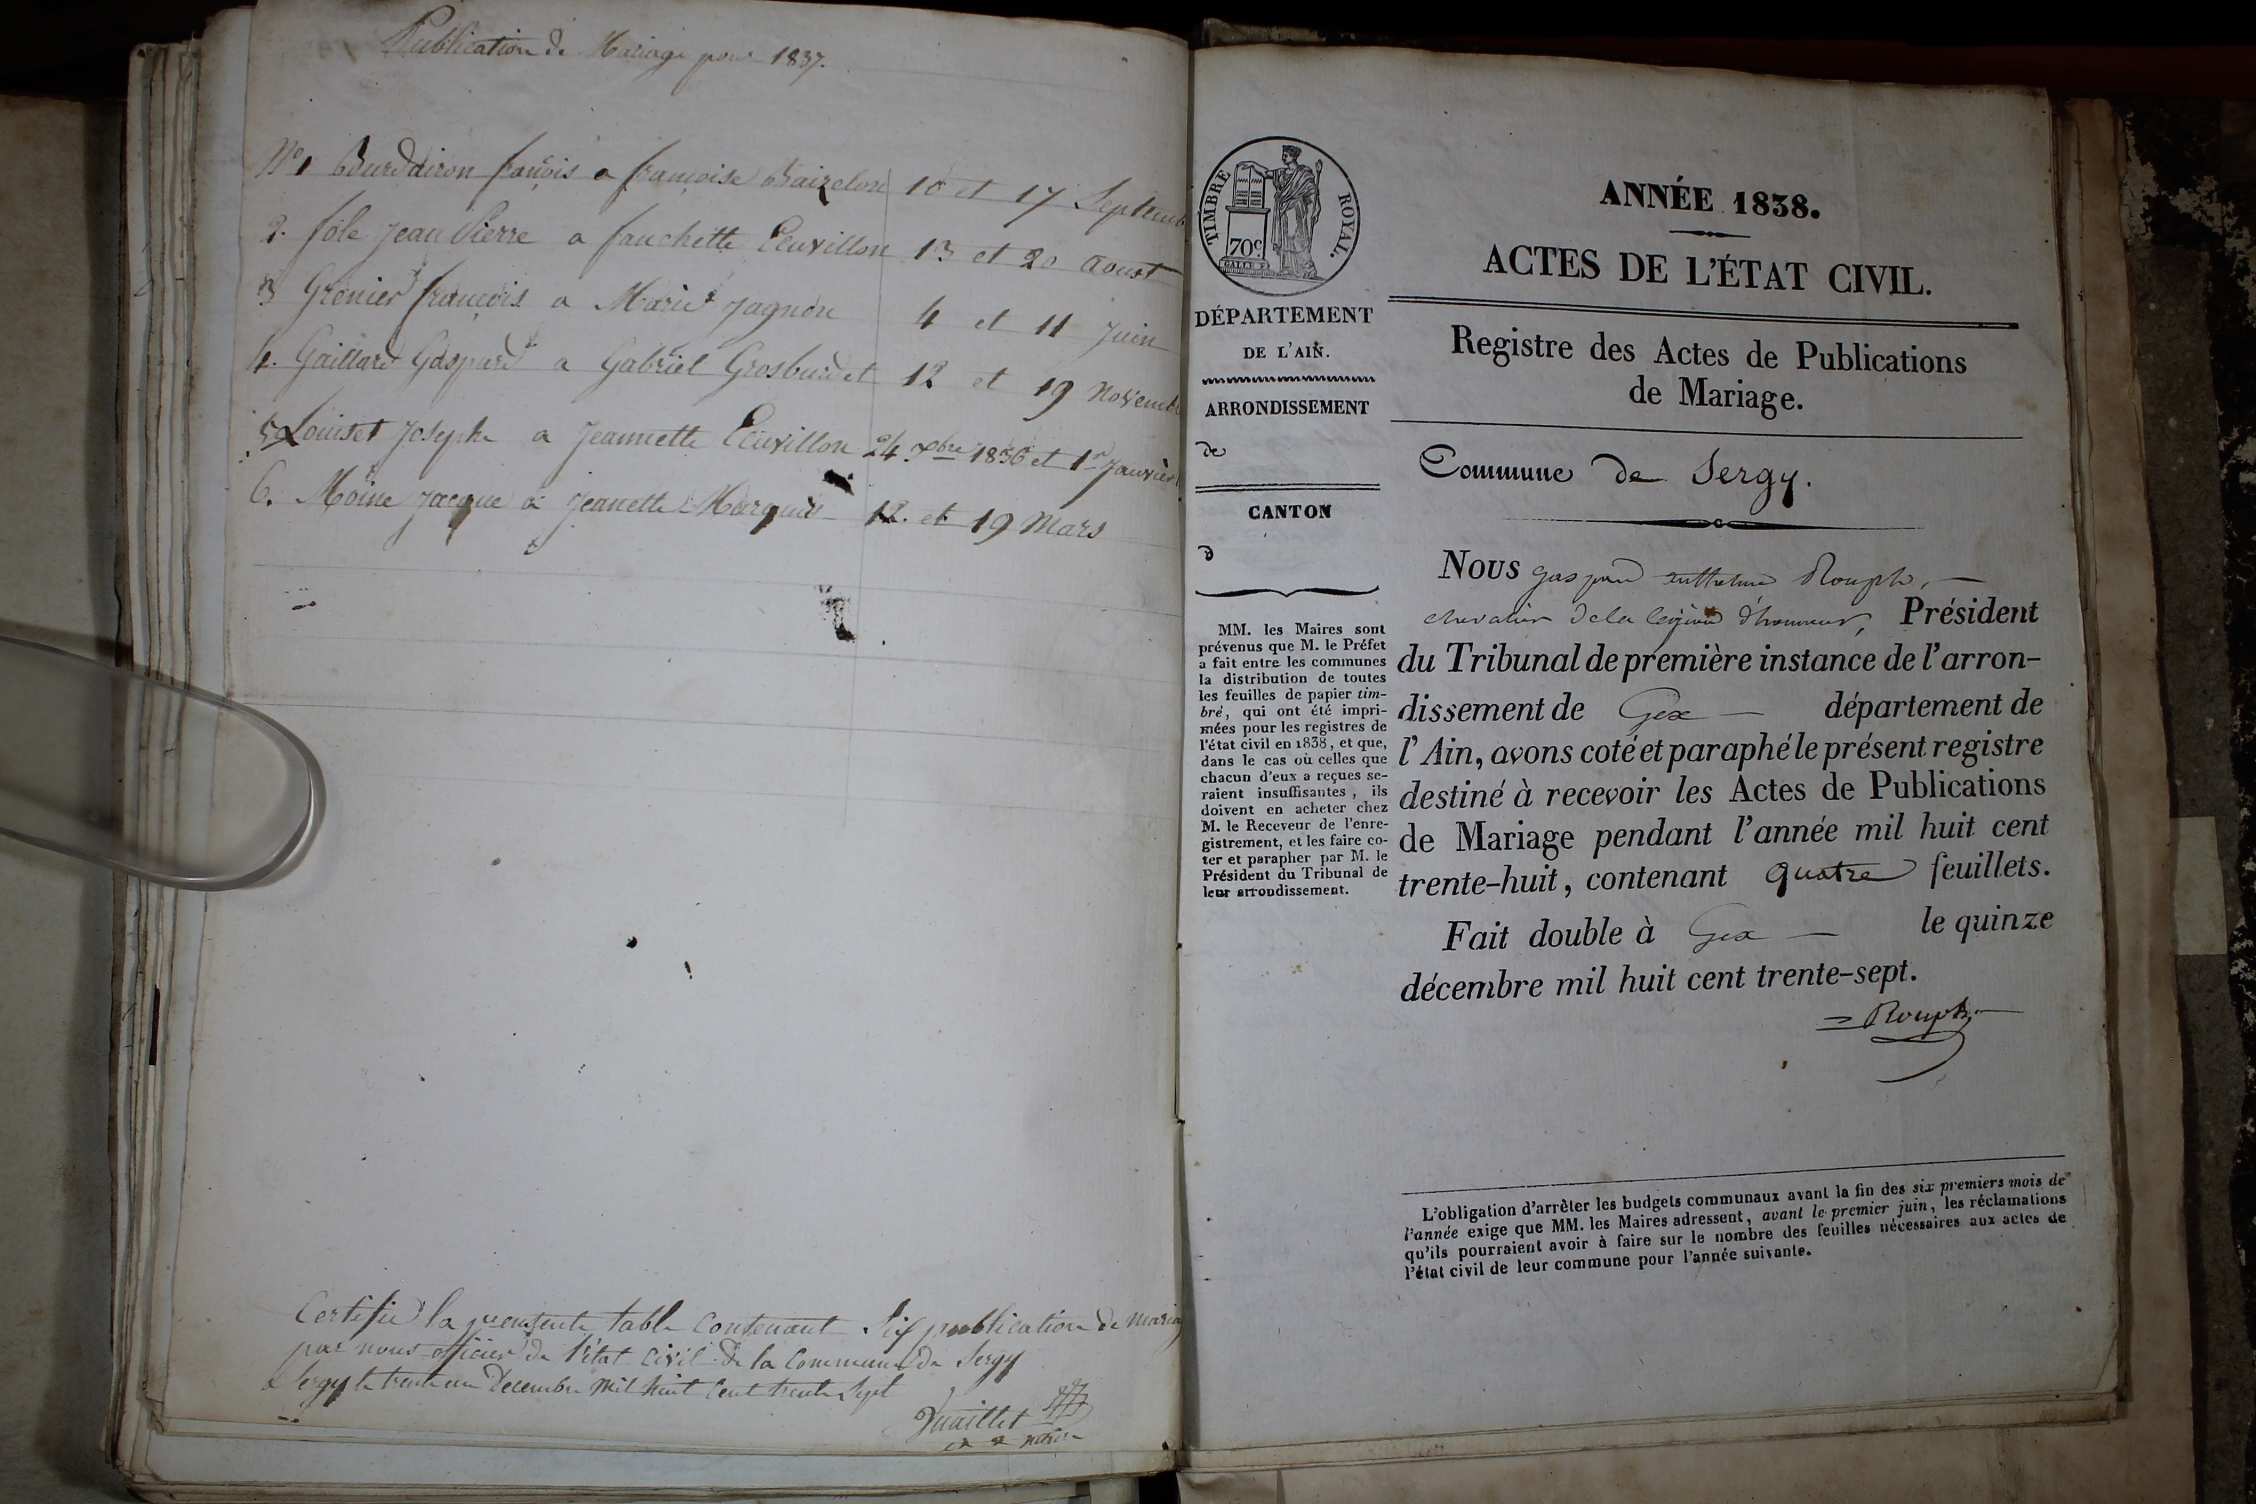 Publication de Mariage pour 1837.
N° 1 Burdairon françois a françoise 10 et 17 Septemb
2. fole Jean Pierre a fanchette Ecuvillon 13 et 20 aoust
3 Grenier françois a Marie Jagnon 4 et 11 Juin
4. Gaillard Gaspard a Gabriel Grosburdet 12 et 19 Novemb
5 Louiset Joseph a Jeannette Ecuvillon 24 Xbre 1836 et 1er Janvier
6. Moine Jacque a Jeanette Marquis 12. et 19 Mars
Certifié la presente table Contenant Six publication de mariag
par nous officier de l'état Civil de la Commune de Sergy
a Sergy le trente un Decembre Mil huit Cent trente Sept
TIMBRE ROYAL.
70c.
DÉPARTEMENT
DE L'AIN.
ARRONDISSEMENT
de
CANTON
d
MM. les Maires sont
prévenus que M. le Préfet
a fait entre les communes
la distribution de toutes
les feuilles de papier tim-
bré, qui ont été impri-
mées pour les registres de
l'état civil en 1838, et que,
dans le cas où celles que
chacun d'eux a reçues se-
raient insuffisantes, ils
doivent en acheter chez
M. le Receveur de l'enre-
gistrement, et les faire co-
ter et parapher par M. le
Président du Tribunal de
leur arrondissement.
ANNÉE 1838.
ACTES DE L'ÉTAT CIVIL.
Registre des Actes de Publications
de Mariage.
Commune de Sergy.
Nous gaspard anthelme Rouph,
chevalier de la légion d'honneur, Président
du Tribunal de première instance de l'arron-
dissement de Gex département de
l'Ain, avons coté et paraphé le présent registre
destiné à recevoir les Actes de Publications
de Mariage pendant l'année mil huit cent
trente-huit, contenant quatre feuillets.
Fait double à Gex le quinze
décembre mil huit cent trente-sept.
Rouph
L'obligation d'arrêter les budgets communaux avant la fin des six premiers mois de
l'année exige que MM. les Maires adressent, avant le premier juin, les réclamations
qu'ils pourraient avoir à faire sur le nombre des feuilles nécessaires aux actes de
l'état civil de leur commune pour l'année suivante.